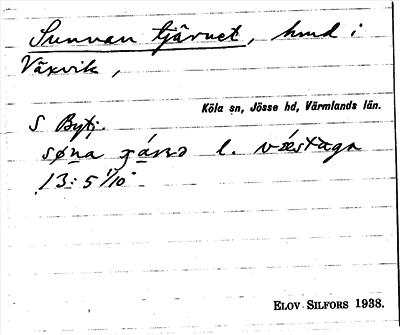 Sunnan tjärnet, hmd i
Växvik,
Köla sn, Jösse hd, Värmlands län.
S Bytj.
l.
13:5 1/10
ELOV SILFORS 1938.